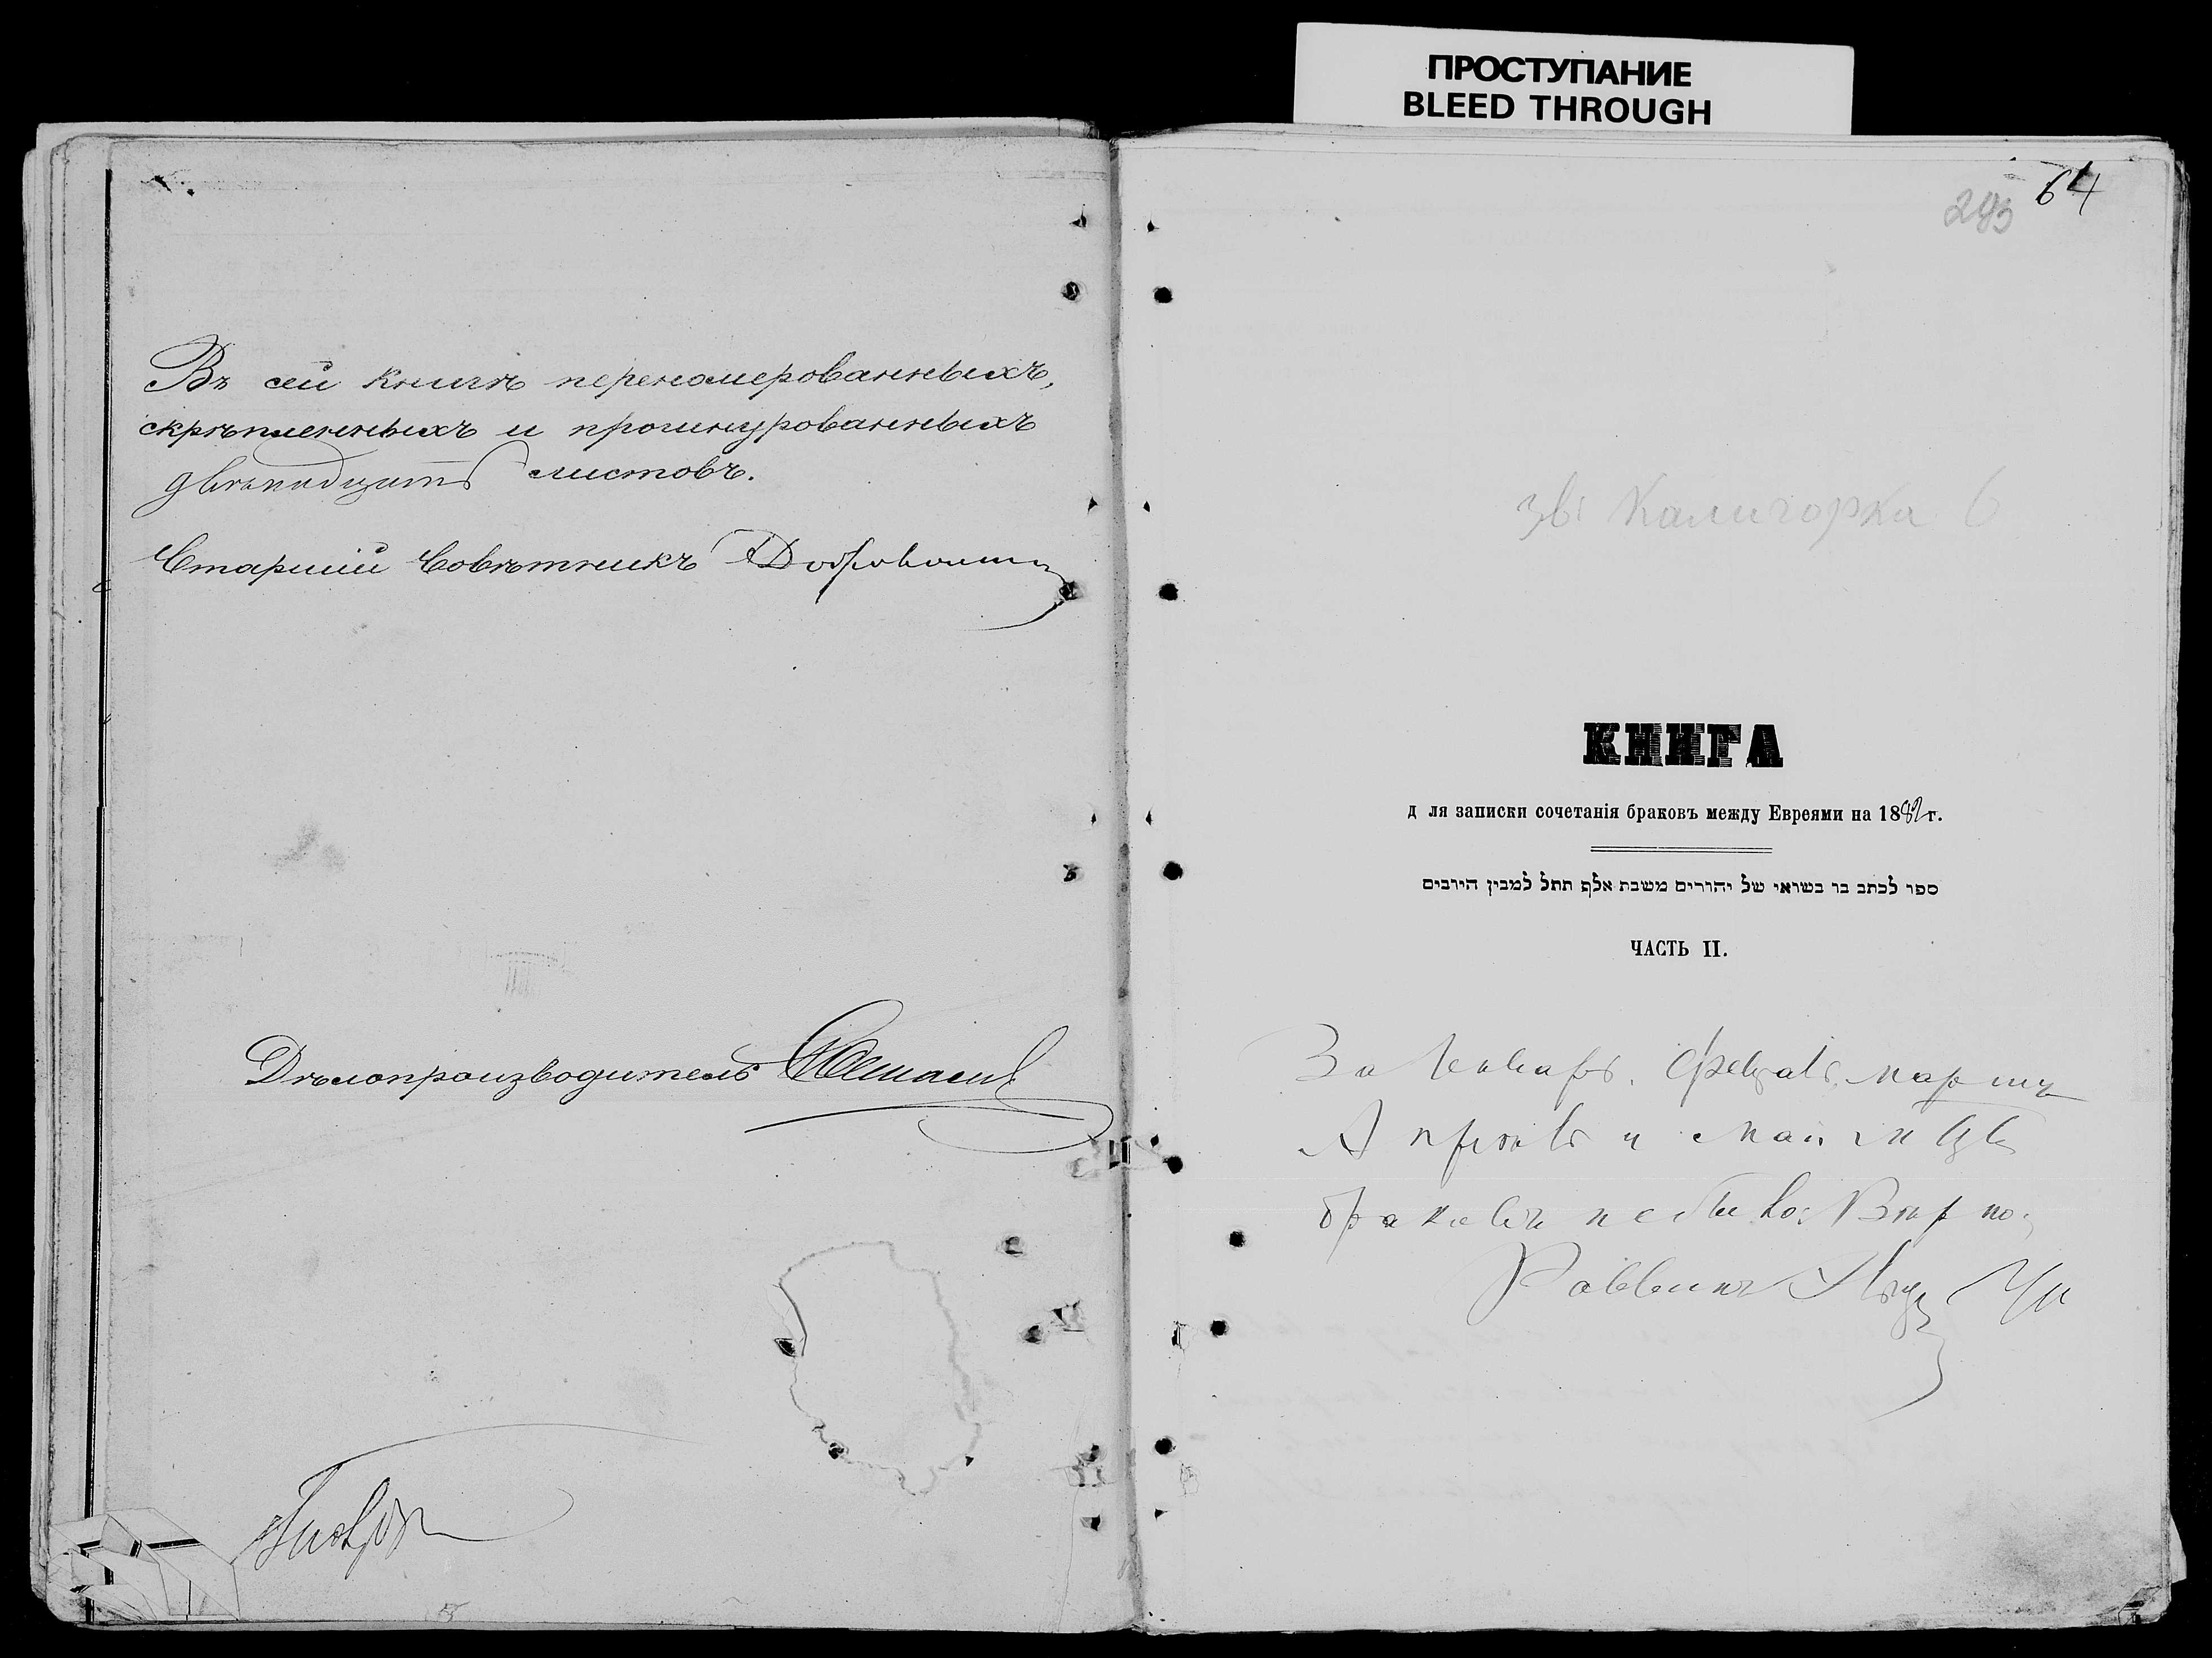 ПРОСТУПАНИЕ
BLEED THROUGH
Въ сей книгѣ перенамерованныхъ,
скрѣпленныхъ и прошнурованныхъ
двѣнадцать листовъ.
Старшій Совѣтникъ
Дѣлопроизводитель
64
283
Калигорка 6
КНИГА
для записки сочетанія браковъ между Евреями на 1882 г.
ספר לכתב בו בשואי של יהודים משבת אלף תתל למבין הירבים
ЧАСТЬ II.
За Январь, Февраль, мартъ
Апрѣль и Май м-цъ
браковъ не было: Вѣрно:
Раввинъ